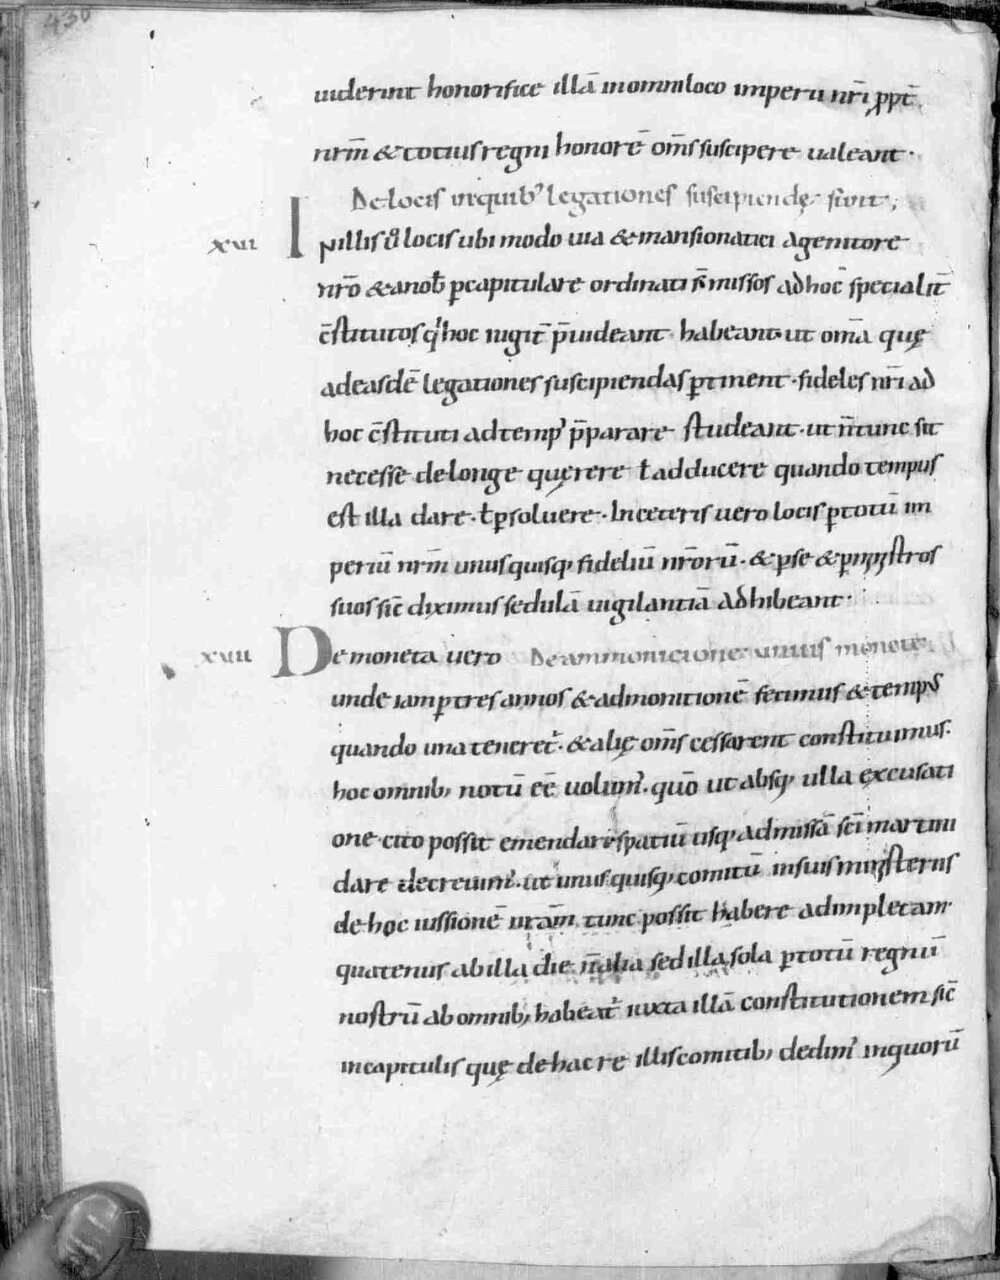 430
uiderint honorifice illā in omni loco imperii nr̄i ꝓpt̄
nrm̄ & totius regni honorē om̄s suscipere ualeant·
De locis in quib' legationes suscipiendę sunt;
XVI In illis ū locis ubi modo uia & mansionatici a genitore
nr̄o & a nob̄ ꝑ capitulare ordinati s̄ missos ad hoc specialit̄
c̄stitutos q' hoc iugit̄ p̄uideant habeant· ut om̄a quę
ad easdē legationes suscipiendas ꝑtinent· fideles nr̄i ad
hoc c̄stituti ad temp' p̄parare studeant· ut n̄ tunc sit
necesse de longe quęrere ł adducere quando tempus
est illa dare· ł ꝑsoluere· In ceteris uero locis ꝑ totū im
periū nrm̄ unusquisq; fideliū nr̄orū· & ꝑ se & ꝑ ministros
suos sic̄ diximus sedulā uigilantiā adhibeant·
XVII De moneta uero De ammonicione unius monete
unde iam ꝑ tres annos & admonitionē fecimus & temp'
quando una teneret'· & alię om̄s cessarent constituimus·
hoc omnib; notū eē uolum'· quō ut absq; ulla excusati
one cito possit emendari spatiū usq; ad missā sc̄i martini
dare decreuim'· ut unusquisq; comitū in suis ministeriis
de hoc iussionē nr̄am tunc possit habere adimpletam·
quatenus ab illa die n̄ alia sed illa sola ꝑ totū regnū
nostrū ab omnib; habeat' iuxta illā constitutionem sic̄
in capitulis quę de hac re illis comitib; dedim' in quorū